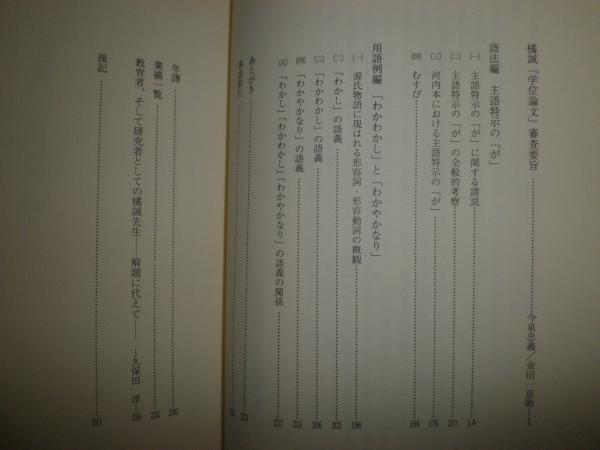 橘誠『学位論文』審査要旨………今泉忠義／金田一京助…1
語法編 主語特示の「が」
㈠ 主語特示の「が」に関する諸説………14
㈡ 主語特示の「が」の全般的考察………20
㈢ 河内本における主語特示の「が」………176
㈣ むすび………194
用語例編 「わかわかし」と「わかやかなり」
㈠ 源氏物語に現はれる形容詞・形容動詞の概観………196
㈡ 「わかし」の語義………202
㈢ 「わかわかし」の語義………206
㈣ 「わかやかなり」の語義………215
㈤ 「わかし」「わかわかし」「わかやかなり」の語義の関係………221
あとがき………223
事項索引………
年譜………230
業績一覧………232
教育者、そして研究者としての橘誠先生――解題に代えて――…久保田 淳…236
後記………241